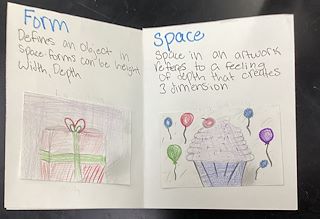 Form
Defines an object in
space forms can be height
Width, Depth
Space
Space in an artwork
refers to a feeling
of depth that creates
3 dimension